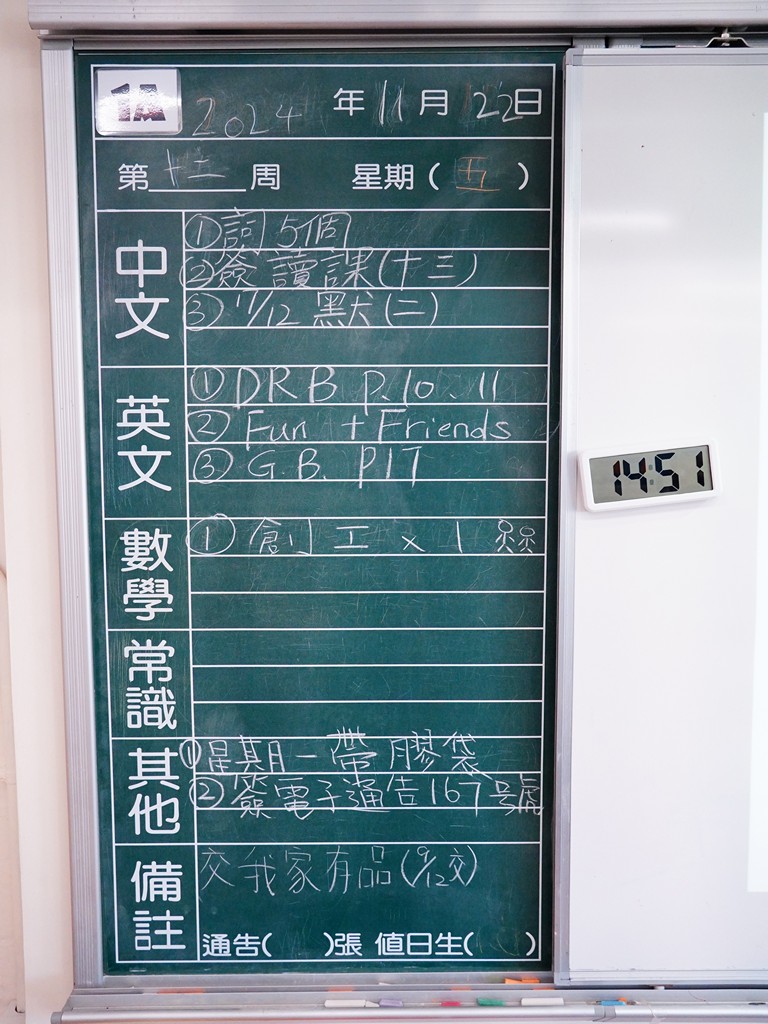 1A 2024 年 11 月 22 日
第 十二 周 星期 ( 五 )
中文
① 詞 5個
② 簽 讀 課 (十三)
③ 17/12 默 (二)
英文
① DRB P.10.11
② Fun + Friends
③ G.B. P17
數學
① 創 工 x 1
常識
其他
① 星期一帶膠袋
② 簽電子通告167号
備註
交我家有品 (9/12交)
通告( )張 值日生( )
14:51